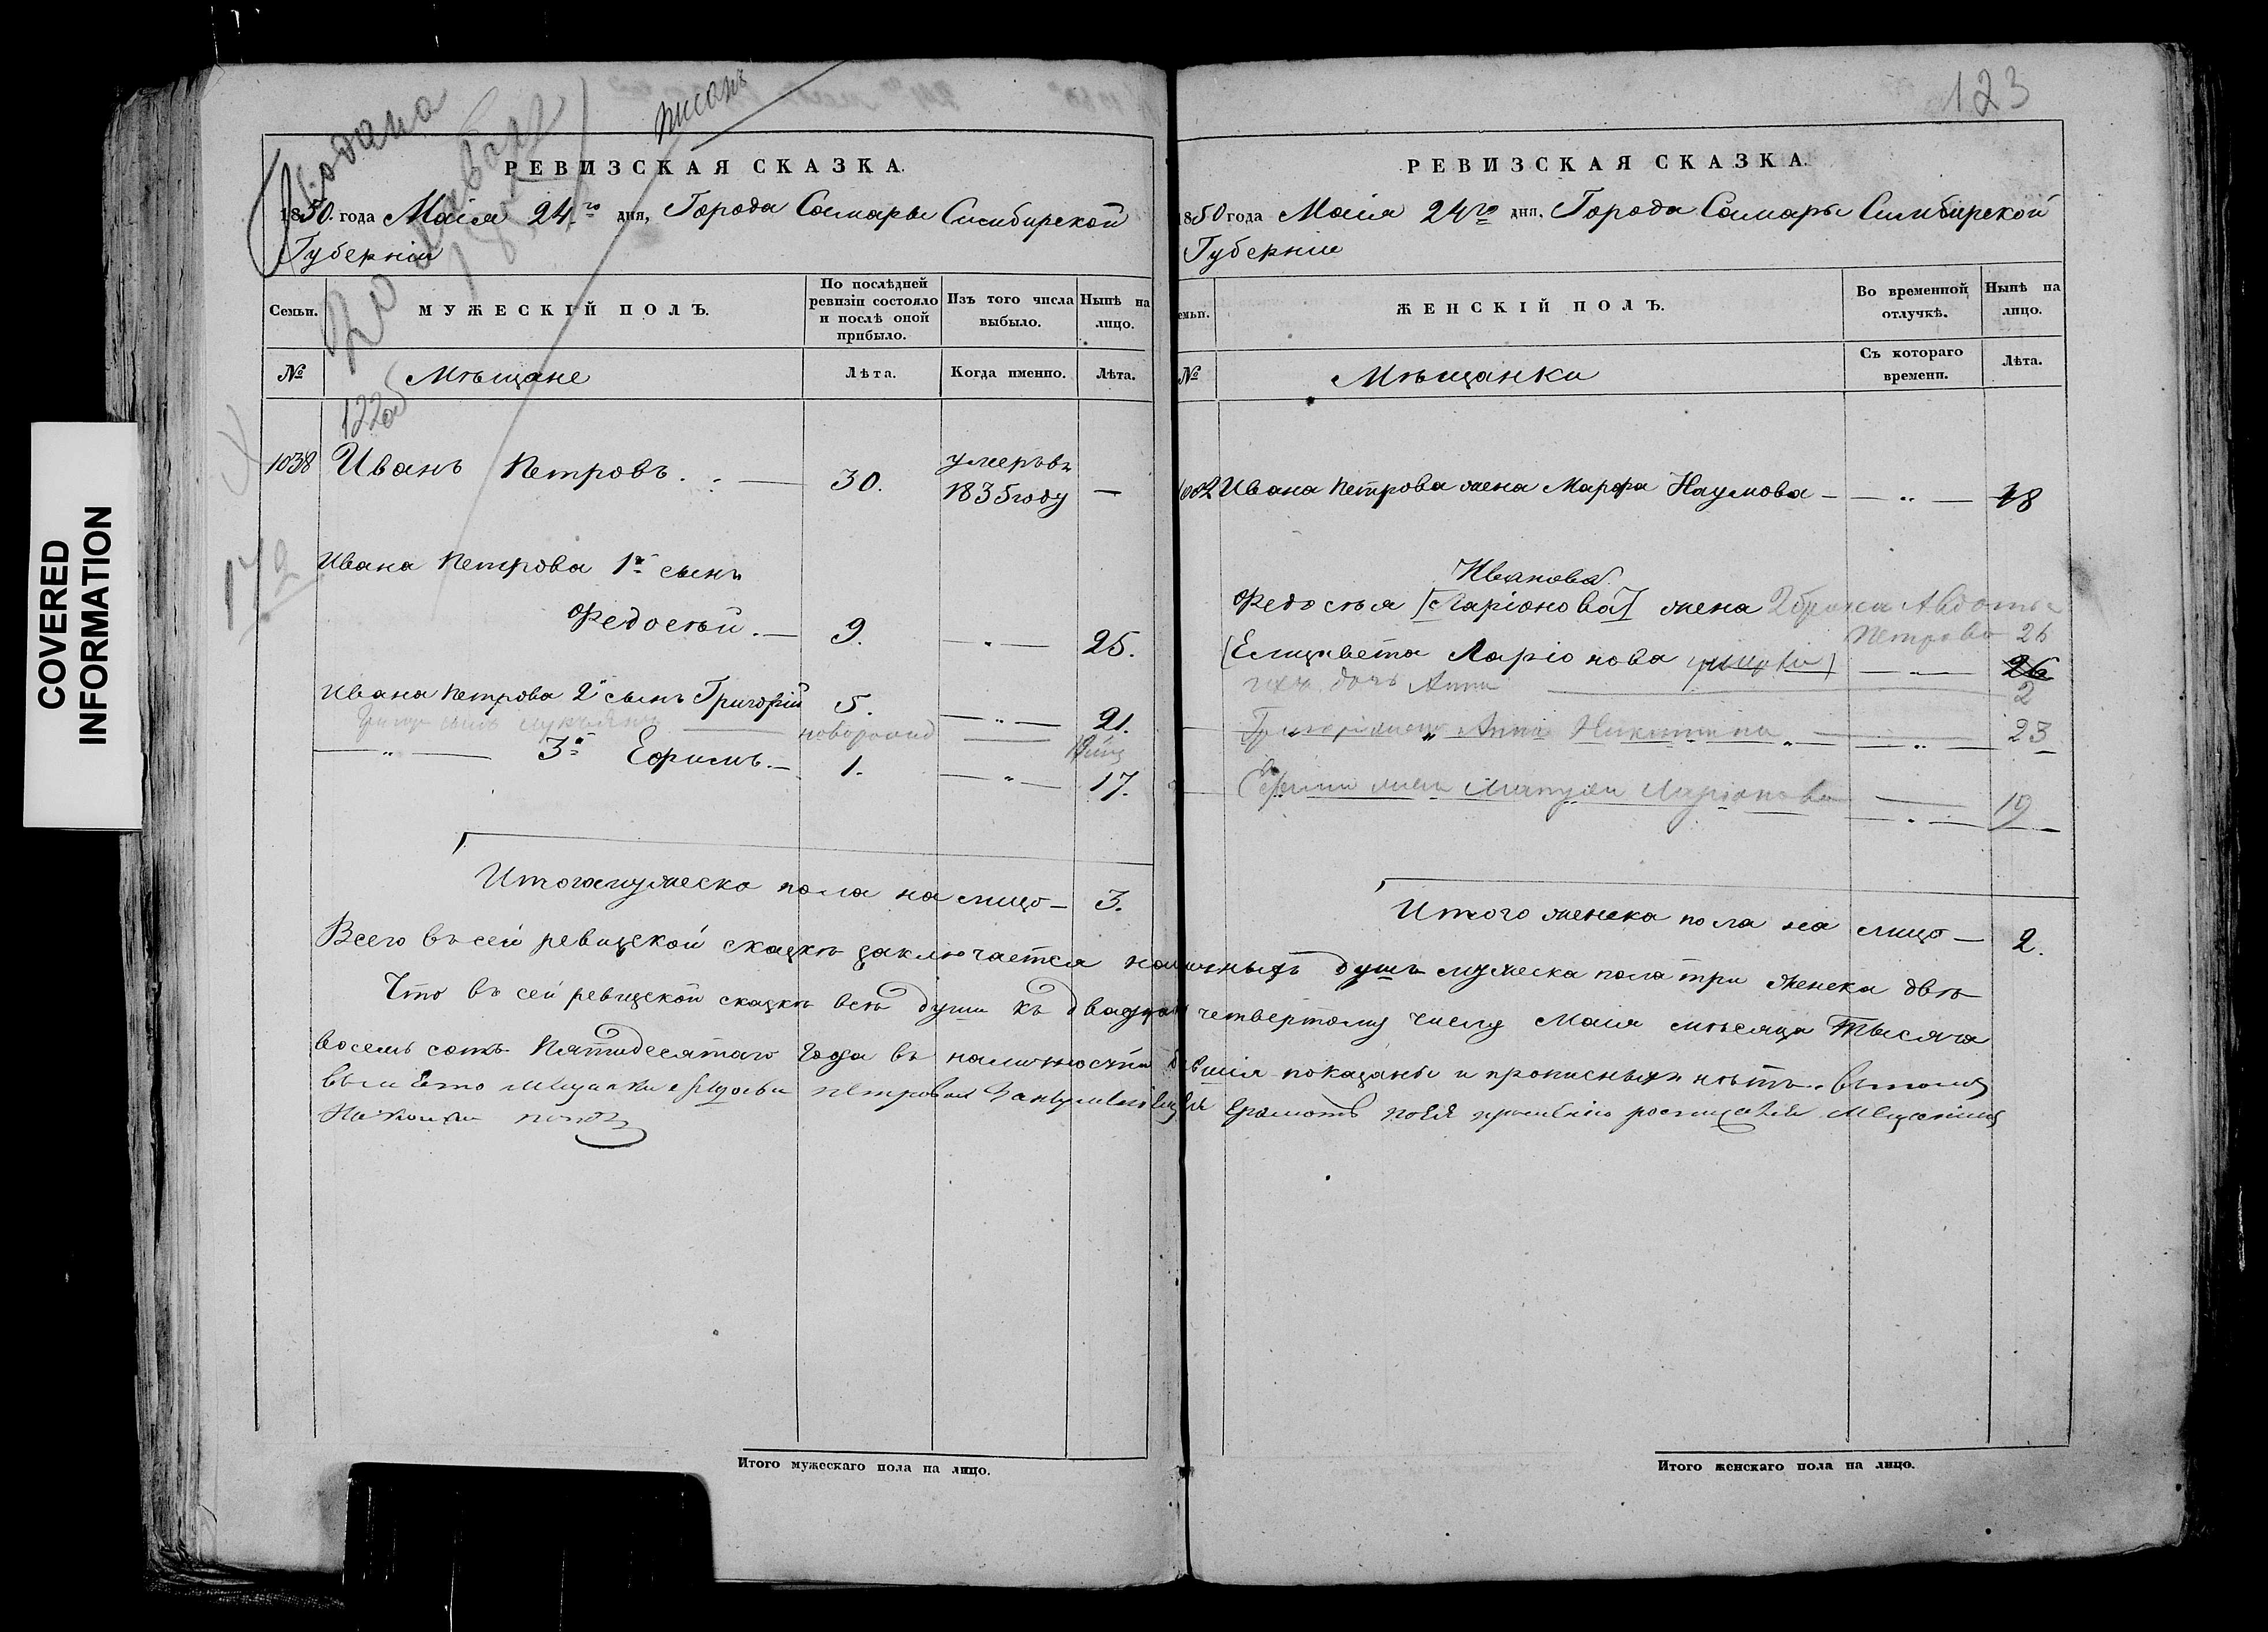 COVERED
INFORMATION
Подана
20 января
писанъ
РЕВИЗСКАЯ СКАЗКА.
1850. года Маія 24го дня, Города Самары Симбирской
Губерніи
Семьи.
МУЖЕСКІЙ ПОЛЪ.
По послѣдней ревизіи состояло и послѣ оной прибыло.
Изъ того числа выбыло.
Нынѣ на лицо.
№
Мѣщане
Лѣта.
Когда именно.
Лѣта.
122об
1038 Иванъ Петровъ. 30. умеръ въ 1835 году —
Ивана Петрова 1й сынъ
Федосѣй. — 9. — „ — 25.
Ивана Петрова 2й сынъ Григорій 5. — „ — 21.
новорожд
— „ — 3й Ефимъ. — 1. — „ — 17.
Итого мужеска пола на лицо — 3.
123
РЕВИЗСКАЯ СКАЗКА.
1850 года Маія 24го дня, Города Самары Симбирской
Губерніи
Семьи.
ЖЕНСКІЙ ПОЛЪ.
Во временной отлучкѣ.
Нынѣ на лицо.
№
Мѣщанки
Съ котораго времени.
Лѣта.
Ивана Петрова жена Марфа Наумова — — „ — 48
Иванова
Федосѣя [Ларіонова] жена 2 брака Авдотья
Петрова 26
(Елизавета Ларіонова умерла) — „ — 26
ихъ дочь Анна 2
Григорія жена Анна Никитина — „ — 23
Ефима жена Ларіонова 19
Итого женска пола на лицо — 2.
Всего въ сей ревизской сказкѣ заключается наличныхъ душъ мужеска пола три женска двѣ
Что въ сей ревизской сказкѣ всѣ души къ двадцать четвертому числу Маія мѣсяца Тысяча
восемь сотъ Пятидесятаго Года въ наличности бывшія показаны и прописныхъ нѣтъ. Въ томъ
Итого мужескаго пола на лицо.
Итого женскаго пола на лицо.